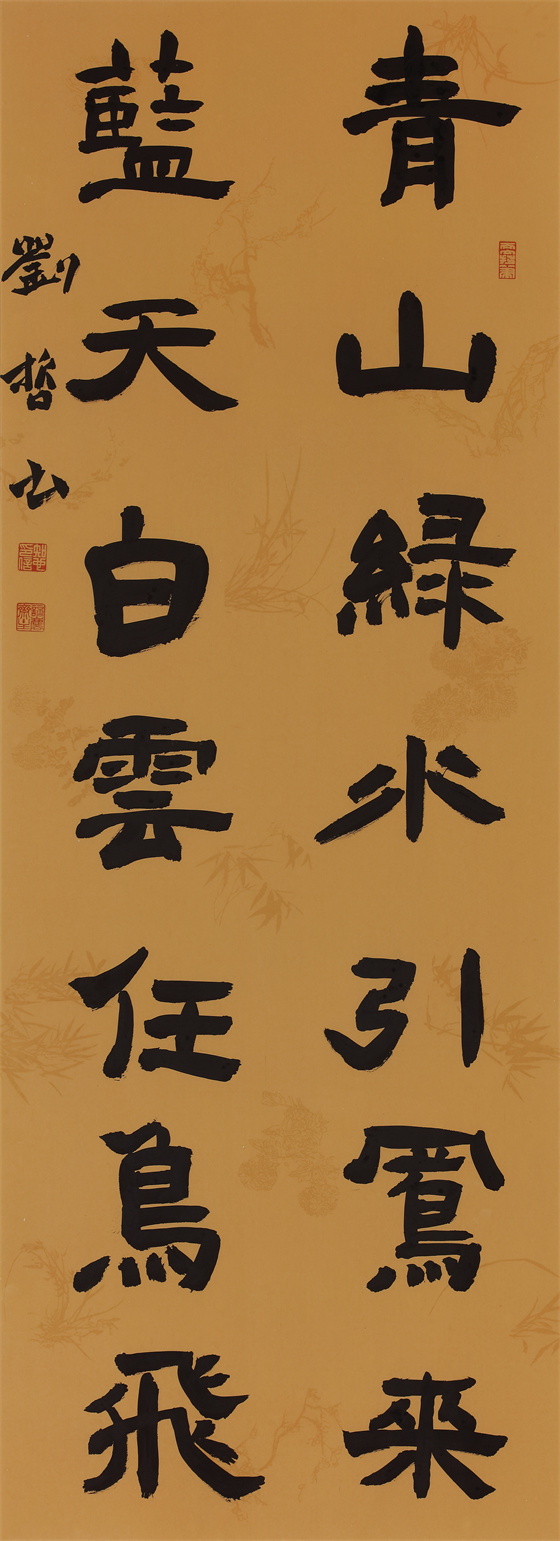 青山綠水引鳳來
藍天白雲任鳥飛
劉哲山